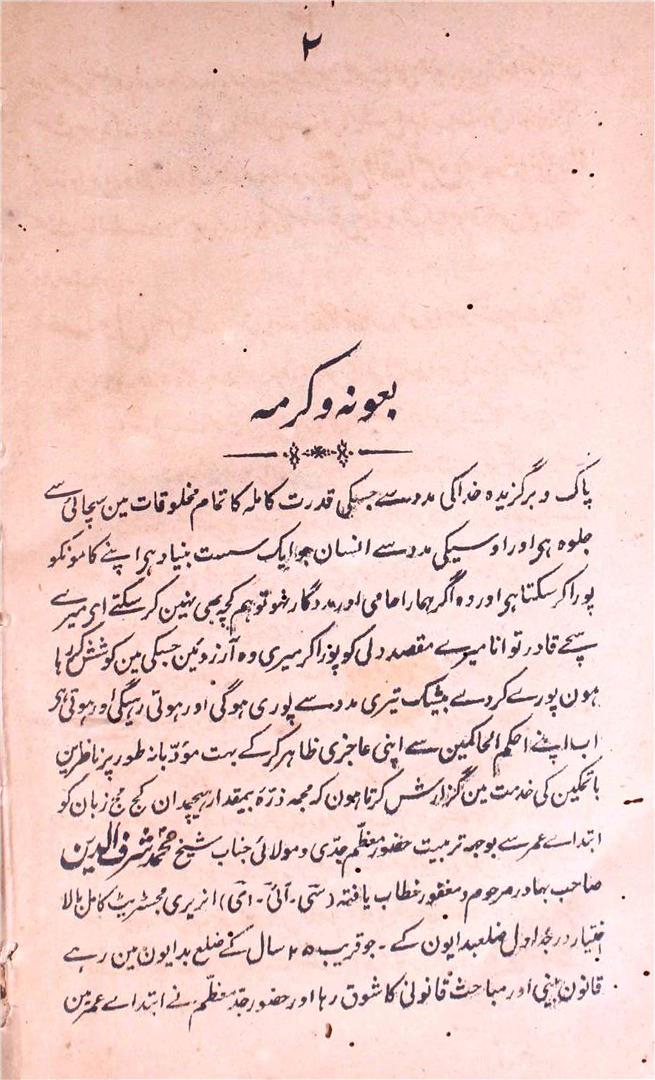 ۲
بعونہ وکرمہ
پاک و برگزیدہ خدا کی مدد سے جسکی قدرت کاملہ کا تمام مخلوقات مین سچائی سے
جلوہ ہی اور اوسیکی مدد سے انسان جو ایک سست بنیاد ہی اپنے کامونکو
پورا کر سکتا ہی اور وہ اگر ہمارا حامی اور مددگار نہو تو ہم کچہ بھی نہین کر سکتے ای میرے
سچے قادر توانا میرے مقصد دلی کو پورا کر میری وہ آرزوئین جسکی مین کوشش کر رہا
ہون پورے کردے بیشک تیری مدد سے پوری ہوگی اور ہوتی رہیگی اور ہوتی ہی
اب اپنے احکم الحاکمین سے اپنی عاجزی ظاہر کر کے بہت مؤدبانہ طور پر ناظرین
باتمکین کی خدمت مین گزارش کرتا ہون کہ مجہ ذرّہ بیمقدار ہیچمدان کج مج زبان کو
ابتداے عمر سے بوجہ تربیت حضور معظّم جدّی و مولائی جناب شیخ محمد شرف الدین
صاحب بہادر مرحوم و مغفور خطاب یافتہ (سی۔آئی۔ای) انریری مجسٹریٹ کامل بالا
اختیار درجۂ اول ضلع بدایون کے۔ جو قریب ۲۵ سال کے ضلع بدایون مین رہے
قانون بینی اور مباحث قانونی کا شوق رہا اور حضور جد معظّم نے ابتداے عمر مین